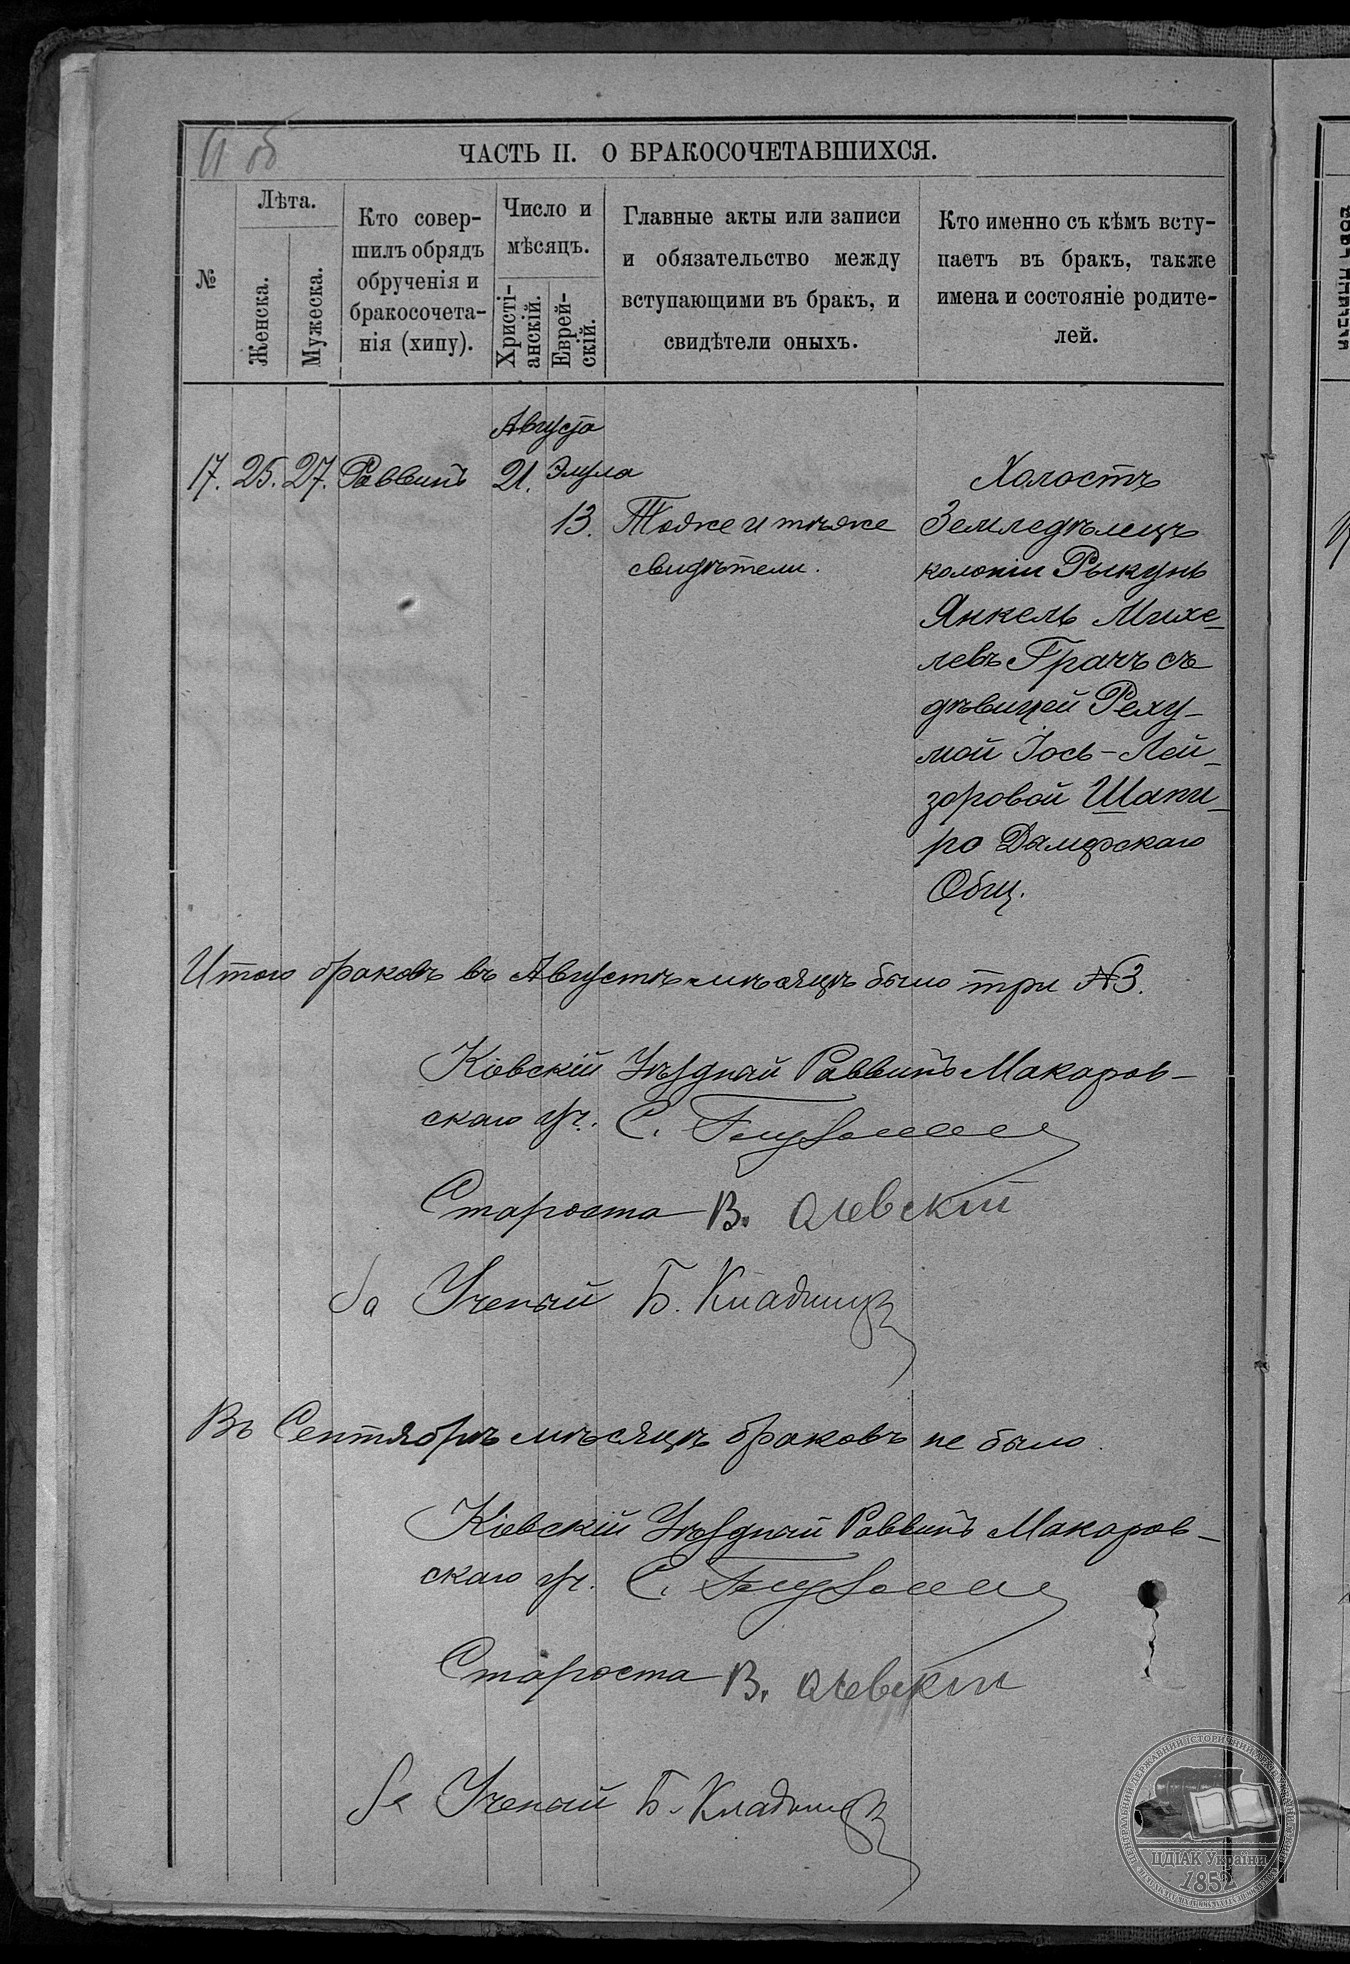 11 об
ЧАСТЬ II. О БРАКОСОЧЕТАВШИХСЯ.
№
Лѣта.
Женска.
Мужеска.
Кто совер-
шилъ обрядъ
обрученія и
бракосочета-
нія (хипу).
Число и
мѣсяцъ.
Христі-
анскій.
Еврей-
скій.
Главные акты или записи
и обязательство между
вступающими въ бракъ, и
свидѣтели оныхъ.
Кто именно съ кѣмъ всту-
паетъ въ бракъ, также
имена и состояніе родите-
лей.
Августа
17. 25. 27. Раввинъ 21. Элула
13.
Тоже и тѣже
свидѣтели.
Холостъ
Земледѣлецъ
колоніи Рыкунь
Янкель Михе-
левъ Грачъ съ
дѣвицей Реху-
мой Іось-Лей-
зоровой Шапи-
ро Дымерскаго
Общ.
Итого браковъ въ Августѣ мѣсяцѣ было три №3.
Кіевскій Уѣздный Раввинъ Макаров-
скаго уч. С.
Староста В.
За Ученый Б.
Въ Сентябрѣ мѣсяцѣ браковъ не было.
Кіевскій Уѣздный Раввинъ Макаров-
скаго уч. С.
Староста В.
За Ученый Б.
ЦДІАК України
1852